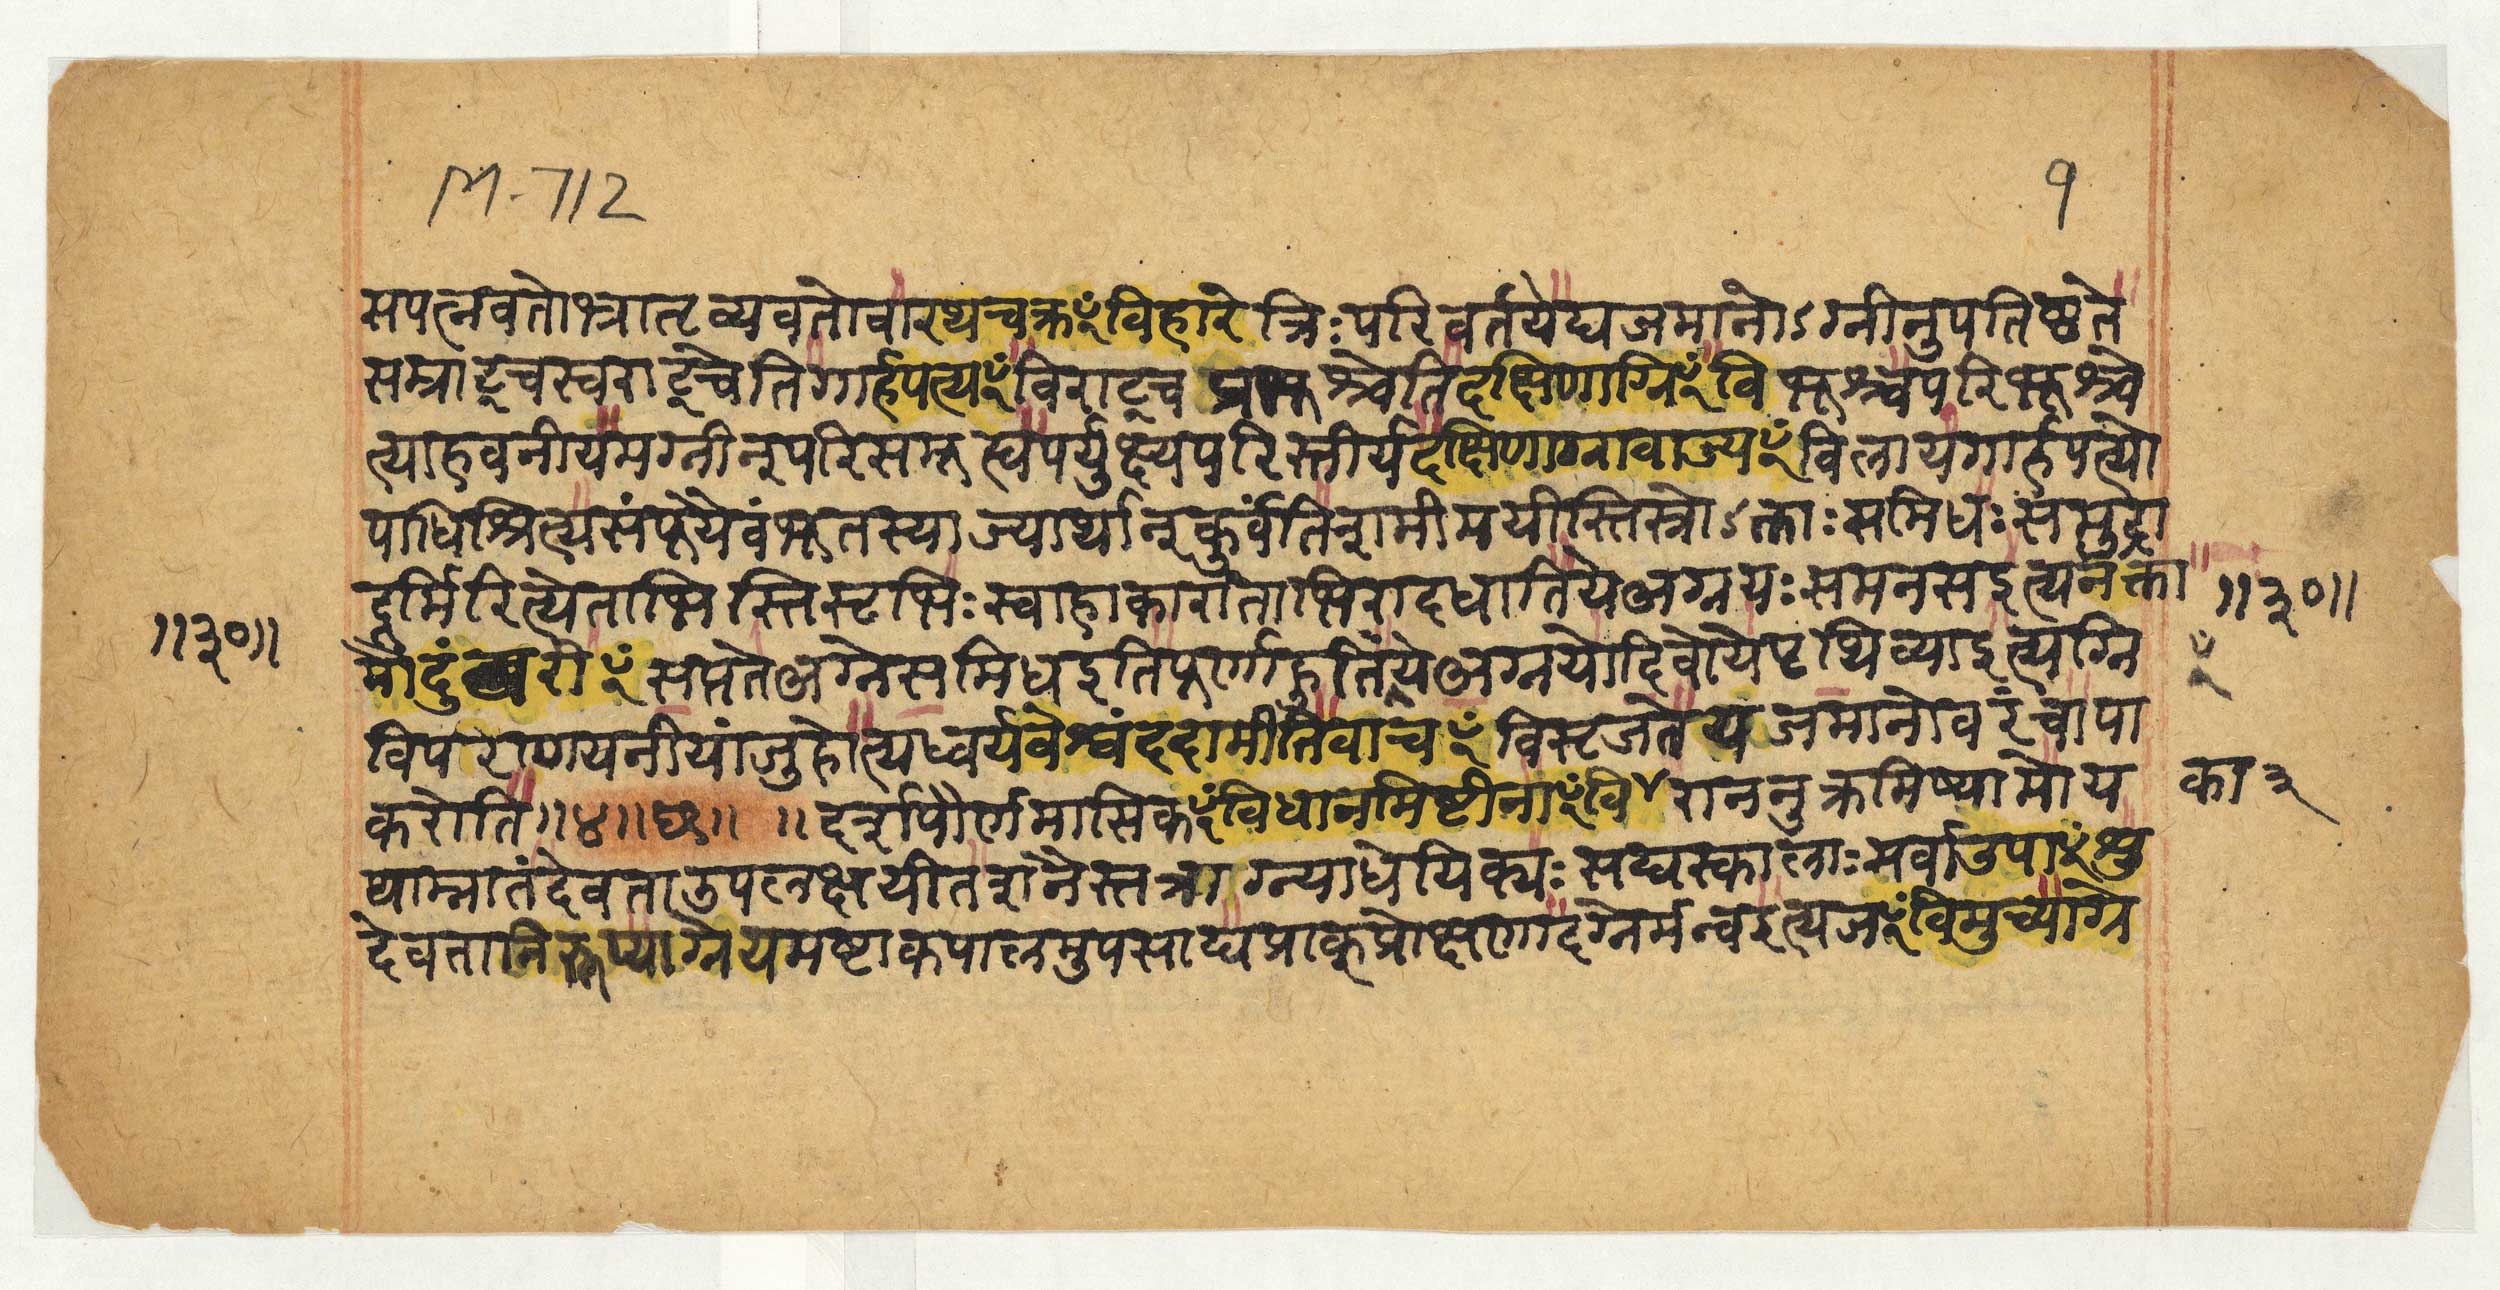 M-712
१
सपत्नवतोभ्रातृव्यवतोवारथचक्रꣳविहारेत्रिःपरिवर्तयेद्यजमानोऽग्नीनुपतिष्ठते
सम्राट्चस्वराट्चेतिगार्हपत्यꣳविराट्चप्रभूश्चेतिदक्षिणाग्निꣳविभूश्चपरिभूश्चे
त्याहवनीयमग्नीन्परिसमूह्यपर्युक्ष्यपरिस्तीर्यदक्षिणाग्नावाज्यꣳविलाप्यगार्हपत्यो
पाधिश्रित्यसंपूयैवंभूतस्याज्यार्थान्कुर्वंतिशमीमयीस्तिस्रोऽक्ताःसमिधःसमुद्रा
दूर्मिरित्येताभिस्तिसृभिःस्वाहाकारांताभिरादधातियेअग्नयःसमनसइत्यनक्ता
॥३०॥
॥३०॥
मौदुंबरीꣳसप्ततेअग्नेसमिधइतिपूर्णाहुतिंयेअग्नयोदिवोयेपृथिव्याइत्यग्नि
विपराणयनीयांजुहोत्यध्वर्यवेश्वंददामीतिवाचꣳविसृजतेयजमानोवरंचापा
करोति॥४॥छ॥ ॥दर्शपौर्णमासिकꣳविधानमिष्टीनाꣳविराननुक्रमिष्यामोय
का ३
थाम्नातंदेवताउपलक्षयीतशनैस्तत्राग्न्याधेयिक्यःसद्यस्कालाःसर्वाउपाꣳशु
देवतानिरूप्याग्नेयमष्टाकपालमुपसाद्यप्राक्प्रोक्षणादग्नेर्मन्वइत्यजꣳविमुच्याग्ने